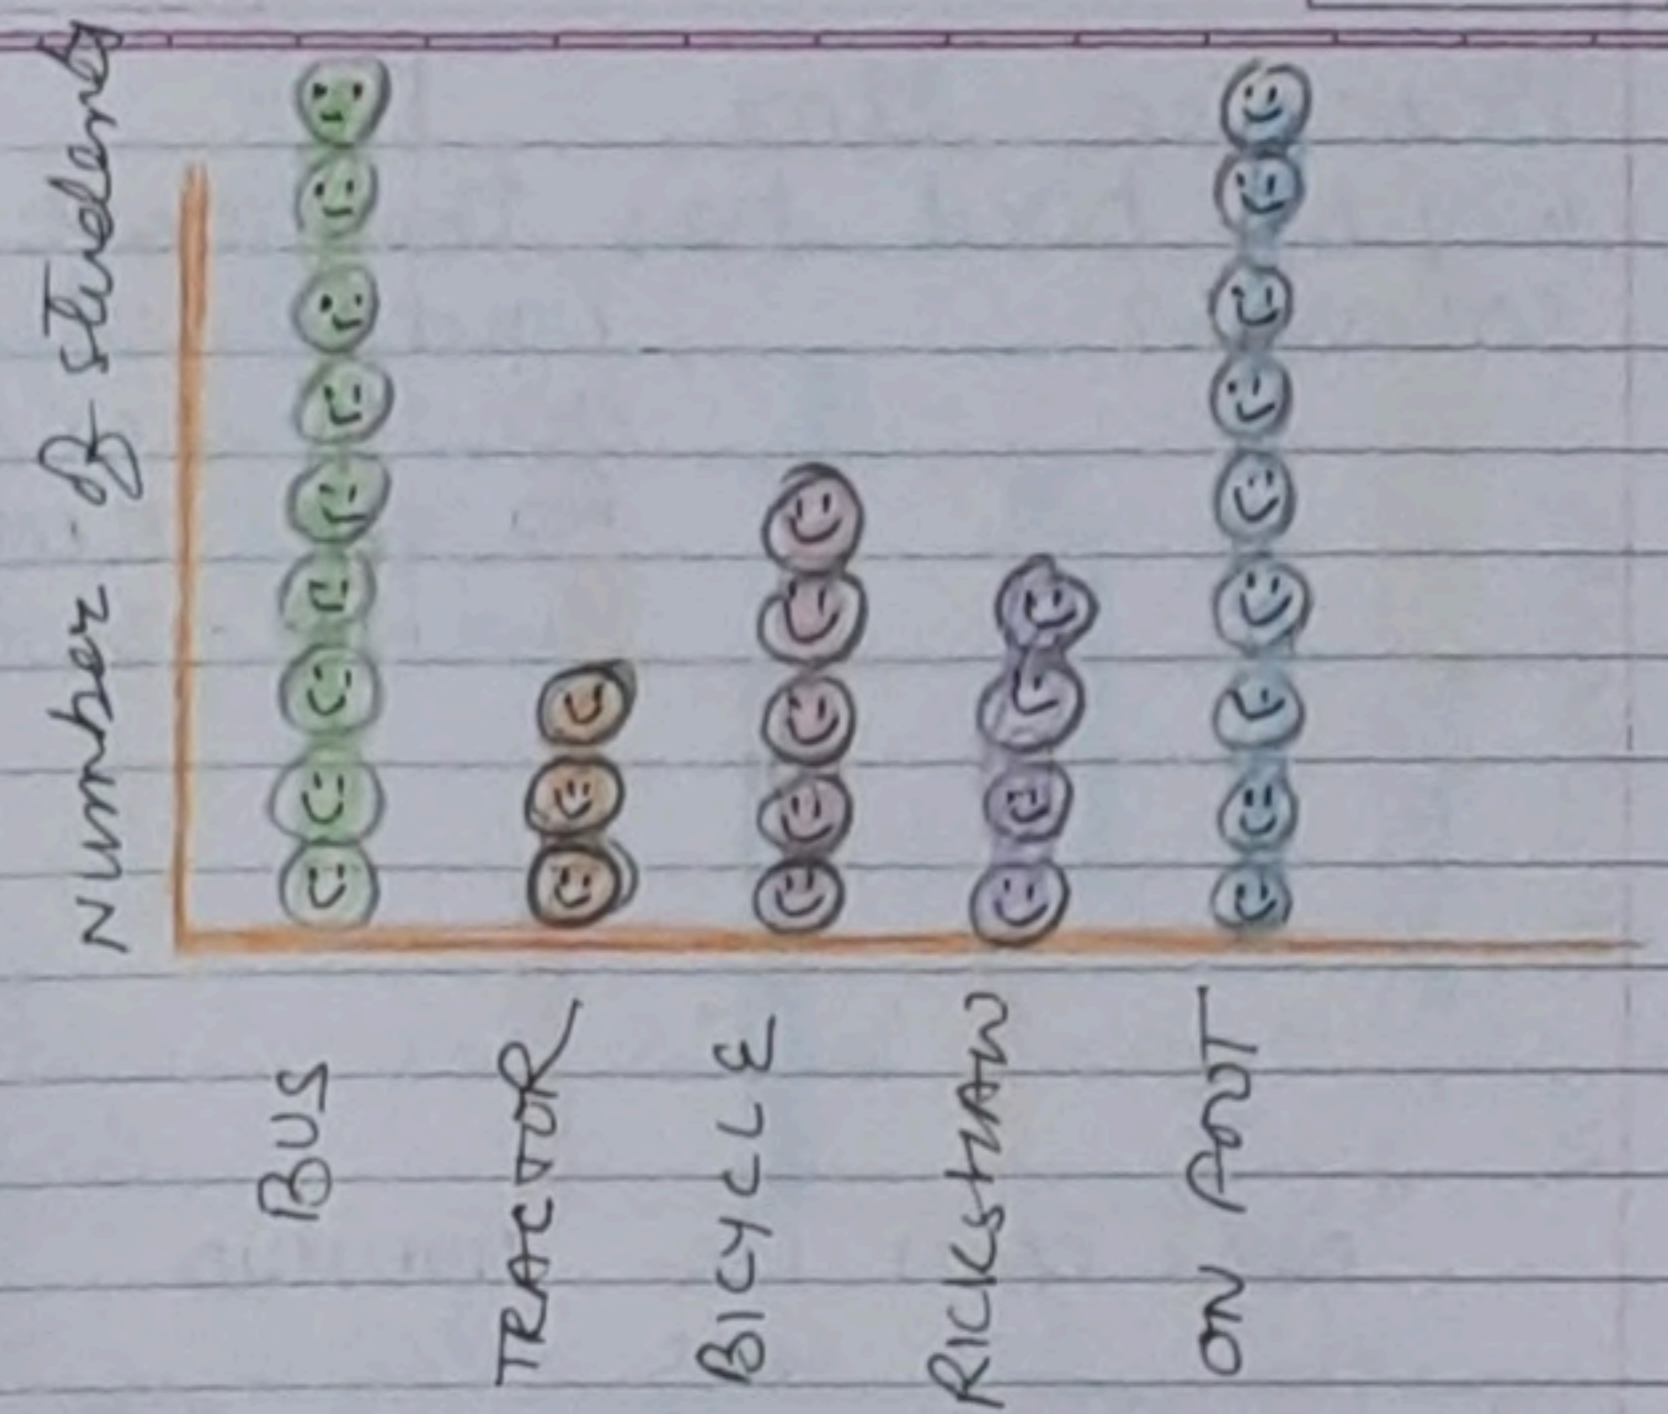 Number of students
BUS
TRACTOR
BICYCLE
RICKSHAW
ON